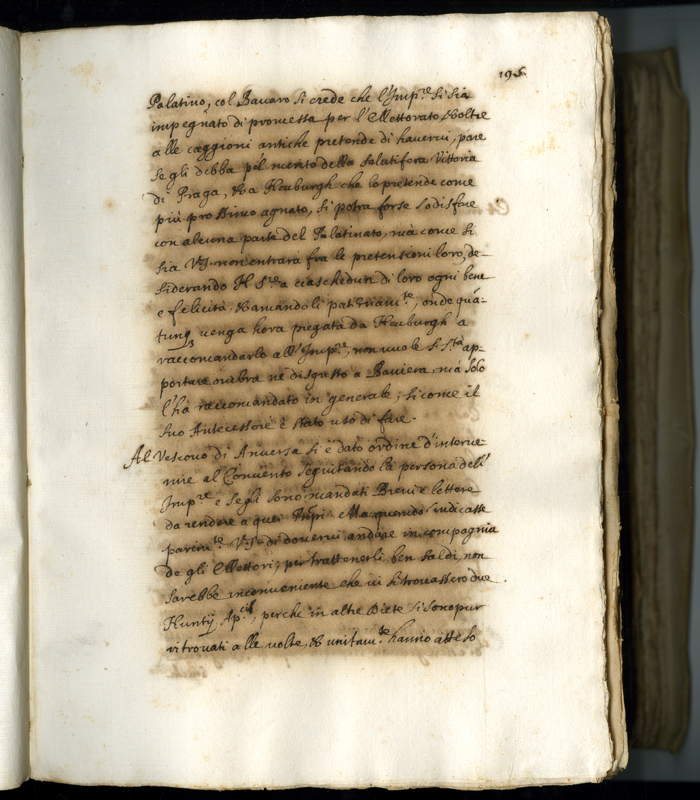 195.
Palatino, col Bavaro si crede che l'Imp.re si sia
impegnato di promessa per l'Elettorato, & oltre
alle caggioni antiche pretende di havervi, pare
se gli debba p il merito della salutifera Vittoria
di Praga, & a Neuburgh che lo pretende come
più prossimo agnato, si potrà forse sodisfare
con alcuna parte del Palatinato, mà come si
sia V.S. non entrarà fra le pretentioni loro, de-
siderando N. S.re a ciascheduri di loro ogni bene
e felicità, & amandoli pat.rnam.te, onde quā-
tunq venga hora piegata da Neuburgh a
raccomandarlo all'Imp.re, non vuole S. S.tà ap-
portare ombra nè disgusto a Baviera, mà solo
l'hà raccomandato in generale, si come il
suo Antecessore è stato uso di fare.
Al Vescovo di Anversa si è dato ordine d'interve-
nire al Convento seguitando la persona dell'
Imp.re e se gli sono mandati Brevi e lettere
da rendere a quei Pnpi e Ma quando indicasse
parim.te V.S. di dovervi andare in compagnia
de gli Elettori, per trattenerli ben saldi, non
sarebbe inconveniente che vi si trovassero due
Nuntij Ap.ci, perche in altre Diete si sono pur
ritrovati alle volte, & unitam.te hanno atteso